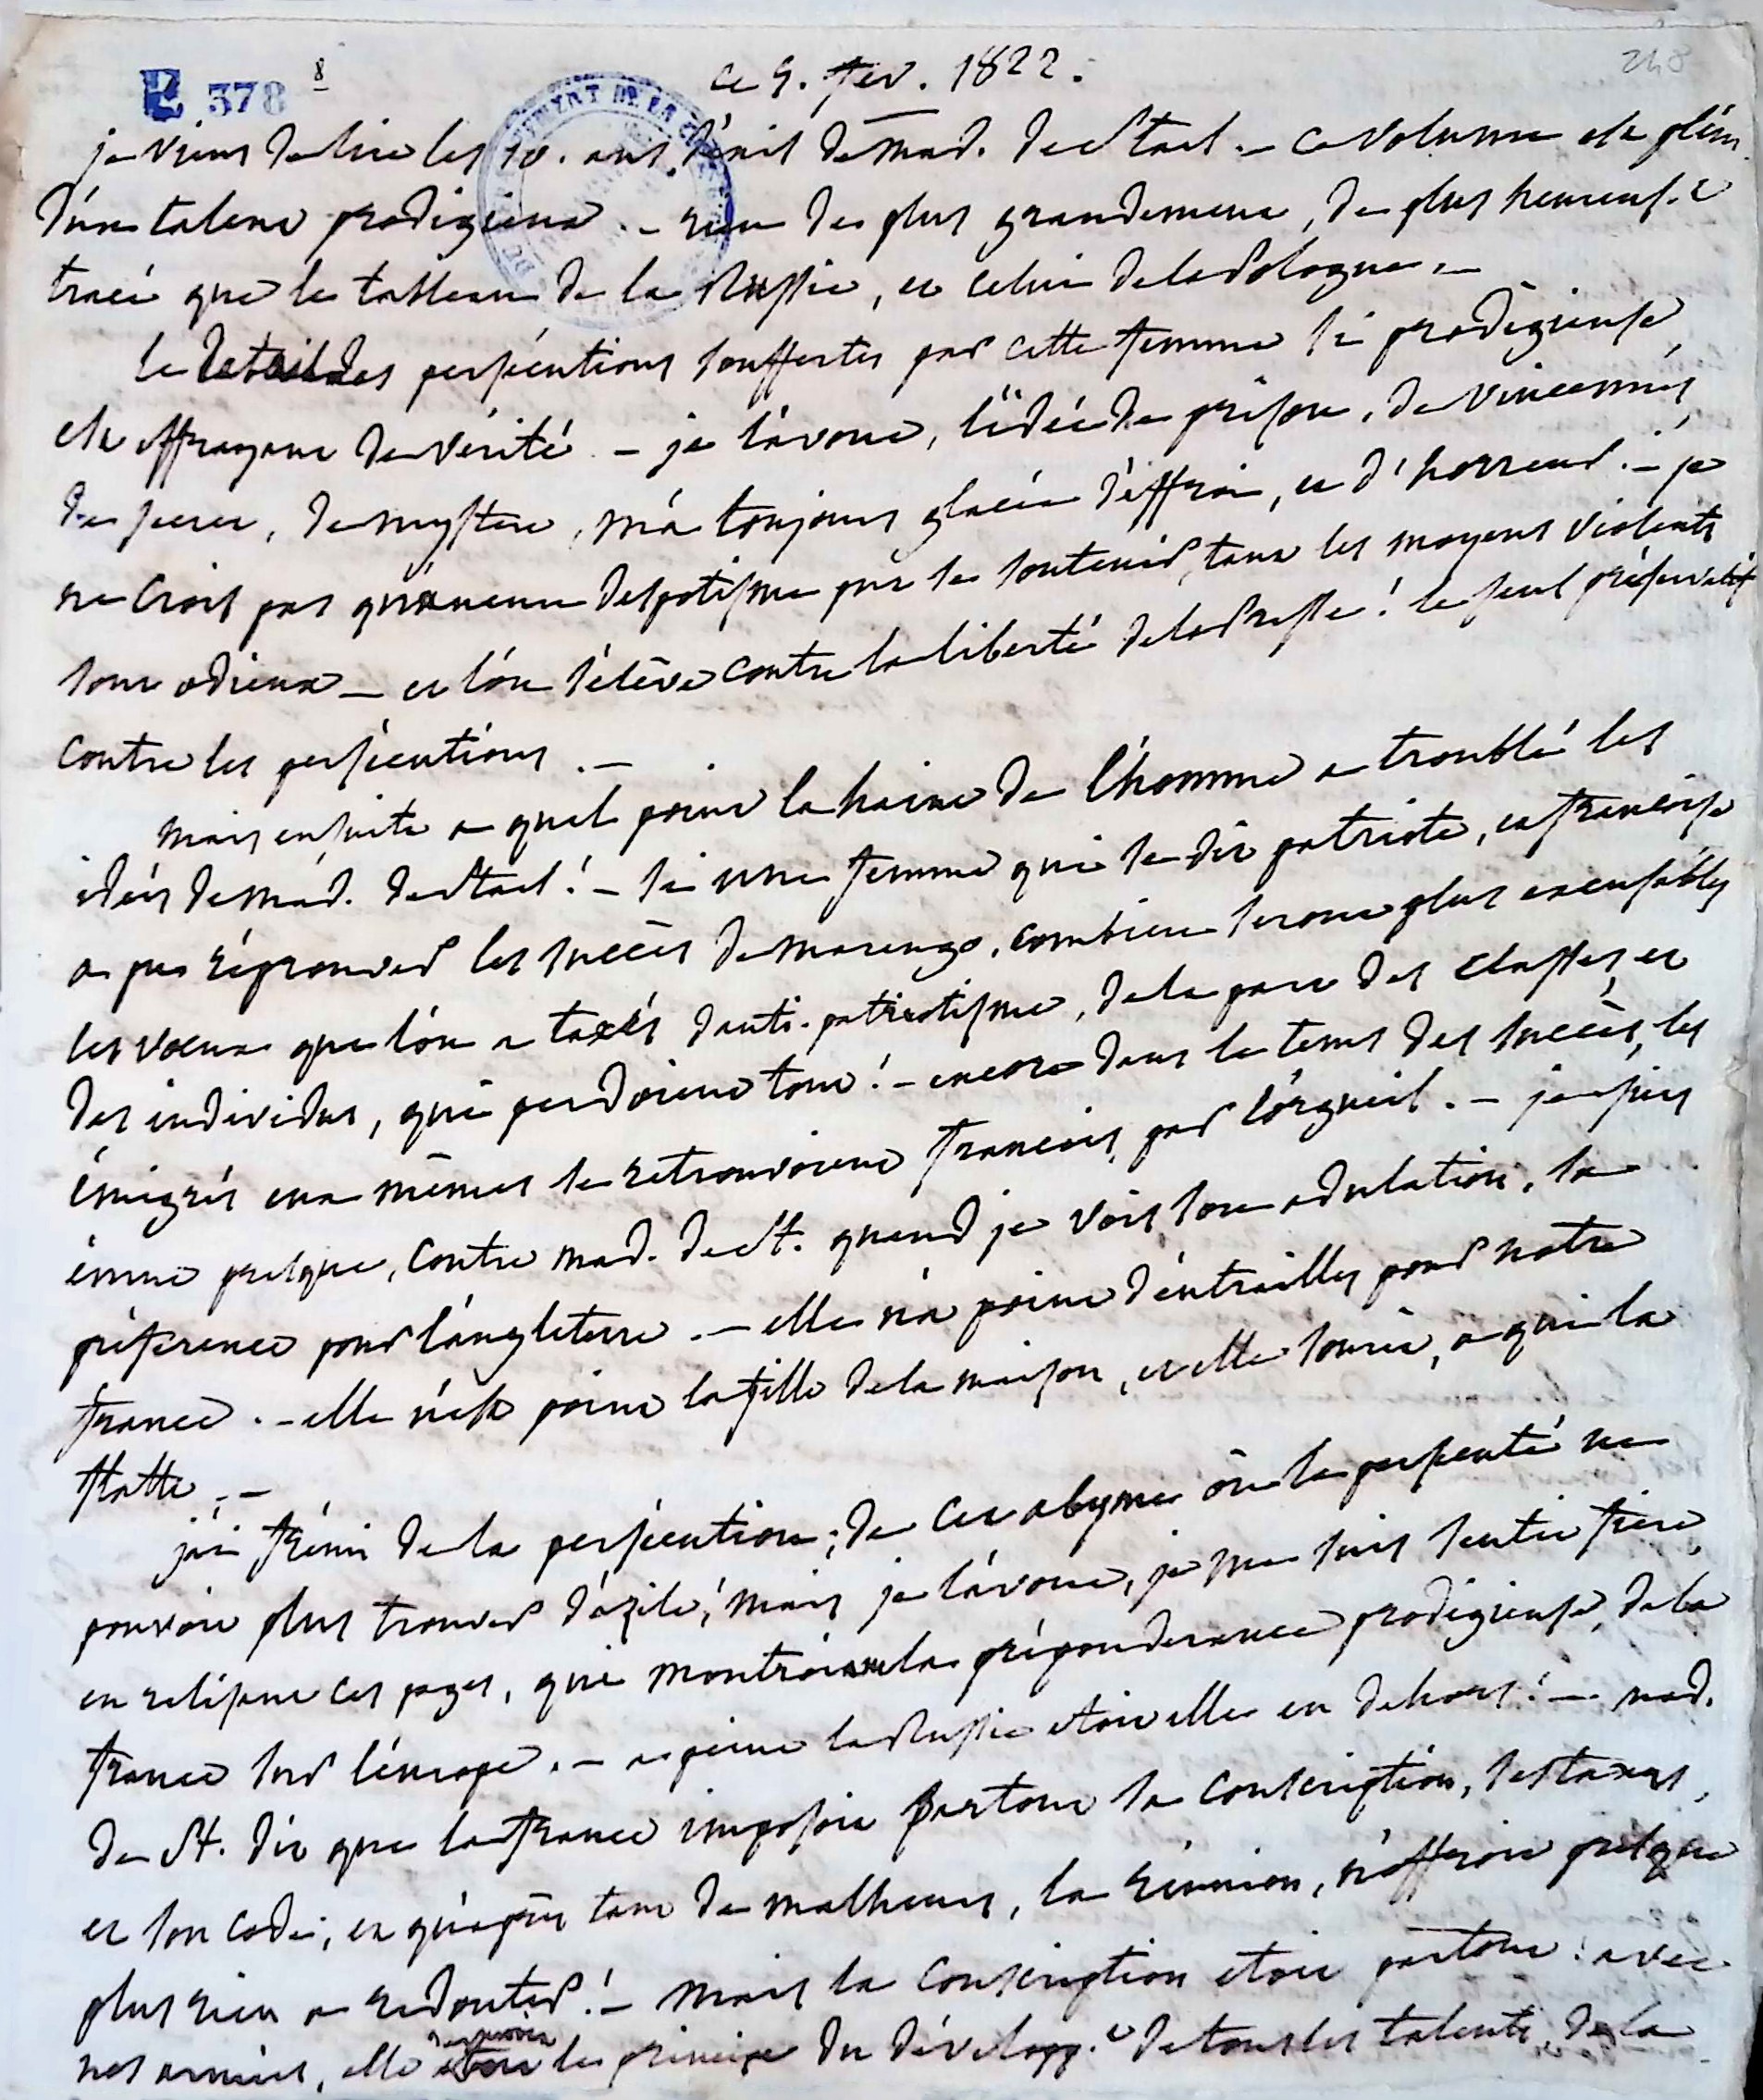 E 378 8
ce 5. fev. 1822.
248
je viens de lire les 10. ans d'exil de mad. de Stael. - ce volume est plein
d'un talent prodigieux. - rien de plus grandement, de plus heureuse.t
tracé que le tableau de la Russie, et celui de la Pologne. -
le detail des persécutions souffertes par cette femme si prodigieuse,
est effrayant de vérité - je l'avoue, l'idée de prison, de vincennes,
de secret, de mystere, m'a toujours glacée d'effroi, et d'horreur. - je
ne crois pas qu'aucun despotisme put se soutenir, tant les moyens violents
sont odieux - et l'on s'élève contre la liberté de la Presse! le seul préservatif
contre les persécutions. -
mais ensuite a quel point la haine de l'homme a troublé les
idées de mad. de Stael! - si une femme qui se dit patriote, et françoise
a pu réprouver les succès de marengo, combien seront plus excusables
les voeux que l'on a taxés d'anti-patriotisme, de la part des classes, et
des individus, qui perdoient tout! - encore dans le tems des succès, les
émigrés eux mêmes se retrouvoient françois, par l'orgueil. - je suis
émue presque, contre mad. de St. quand je vois son adulation, sa
préference pour l'angleterre. - elle n'a point d'entrailles pour notre
france. - elle n'est point la fille de la maison, et elle sourit, a qui la
flatte. -
j'ai frémi de la persécution, de cet abyme où le persécuté ne
pouvoit plus trouver d'azile, mais je l'avoue, je me suis sentie fiere,
en relisant ces pages, qui montroient la prépondérance prodigieuse, de la
france sur l'europe. - a peine la Russie etoit elle en dehors! - mad.
de St. dit que la france imposoit partout sa conscription, ses taxes,
et son code, et qu'après tant de malheurs, la réunion, n'offroit presque
plus rien a redouter! - mais la conscription etoit partout! avec
nos armées, elle le principe du développ.t de tous les talents, de la